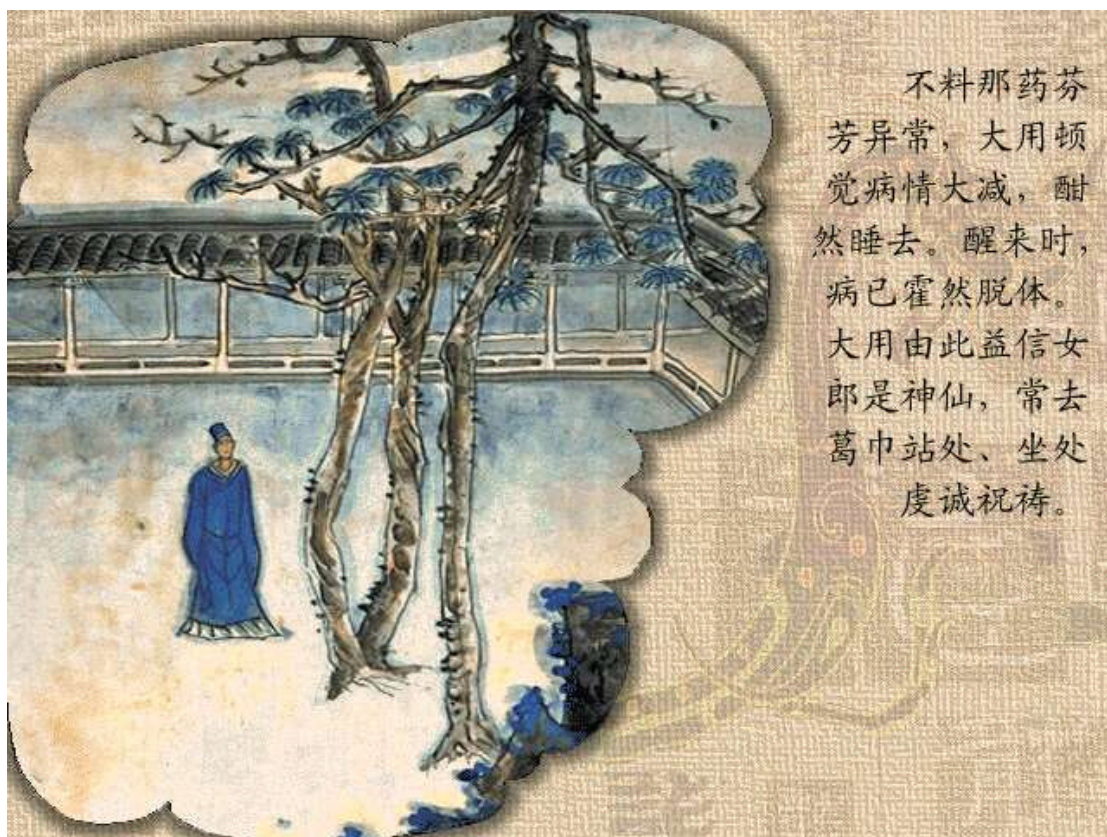 不料那药芬
芳异常，大用顿
觉病情大减，酣
然睡去。醒来时，
病已霍然脱体。
大用由此益信女
郎是神仙，常去
葛巾站处、坐处
虔诚祝祷。